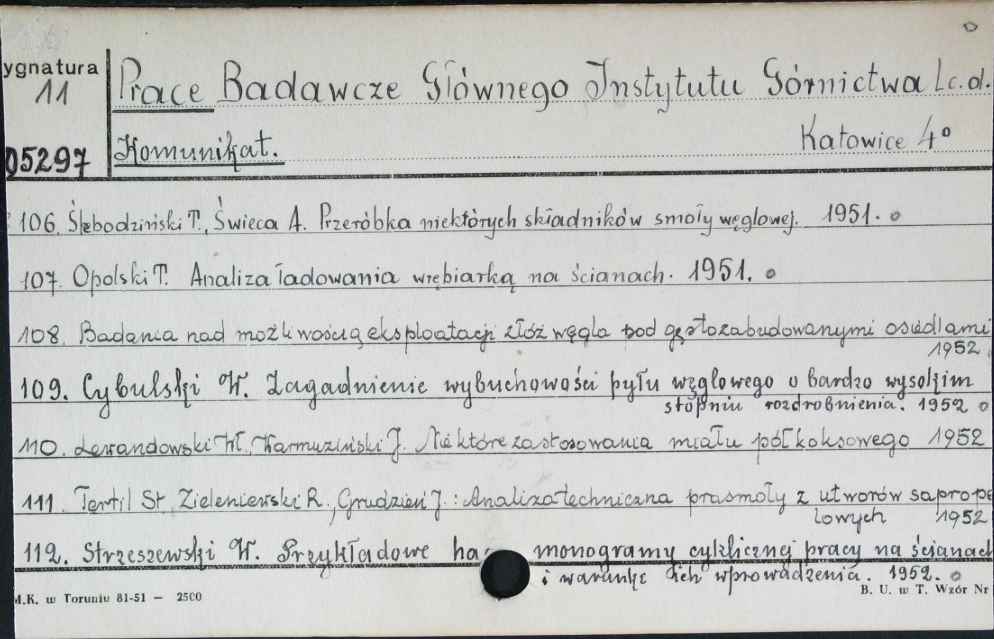 ygnatura
11
05297
Prace Badawcze Głównego Instytutu Górnictwa c.d.
Komunikat. Katowice 4°
106. Ślebodziński T., Świeca A. Przeróbka niektórych składników smoły węglowej. 1951.
107. Opolski T. Analiza ładowania wrębiarką na ścianach. 1951.
108. Badania nad możliwością eksploatacji złóż węgla pod gęstozabudowanymi osiedlami
1952
109. Cybulski W. Zagadnienie wybuchowości pyłu węglowego o bardzo wysokim
stopniu rozdrobnienia. 1952
110. Lewandowski Wł., Warmuziński J. Niektóre zastosowania miału półkoksowego 1952
111. Tertil St, Zieleniewski R., Grudzień J.: Analiza techniczna prasmoły z utworów saprope
lowych 1952
112. Strzeszewski W. Przykładowe ha monogramy cyklicznej pracy na ścianach
i warunki ich wprowadzenia. 1952.
M.K. w Toruniu 81-51 — 2500 B. U. w T. Wzór Nr